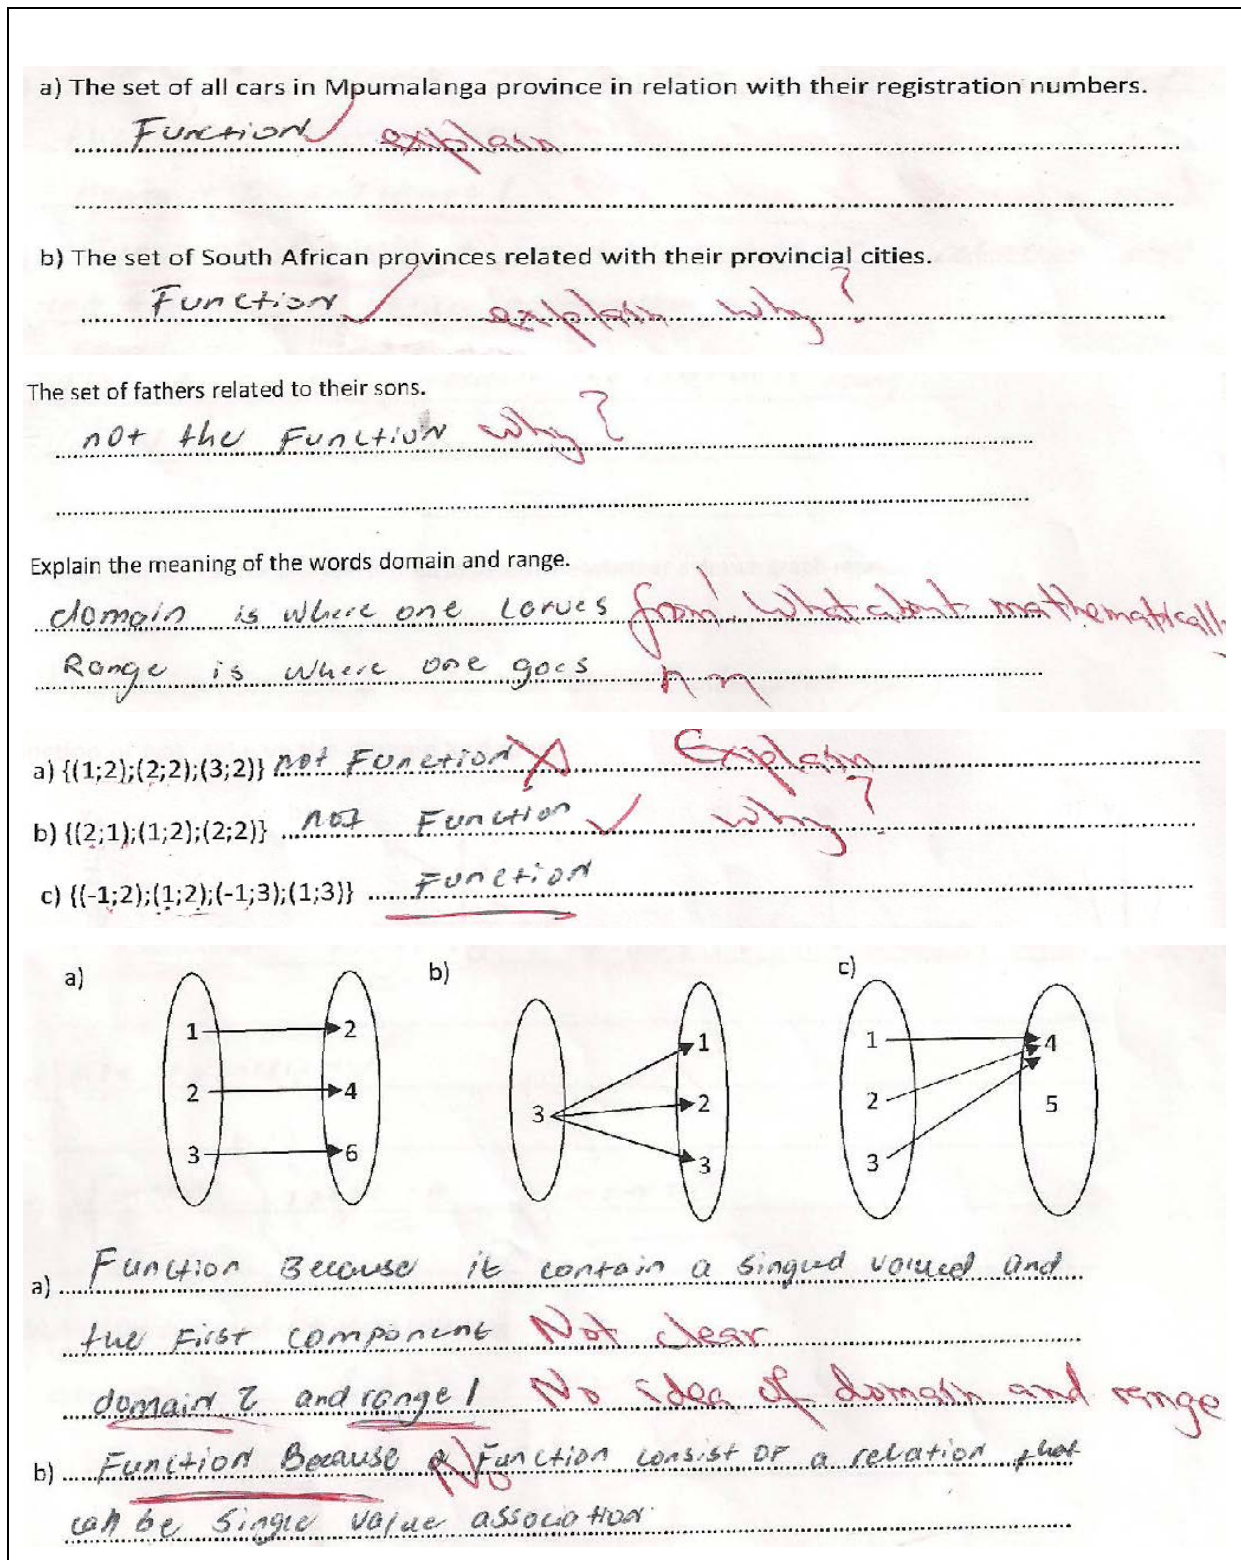 a) The set of all cars in Mpumalanga province in relation with their registration numbers.
Function explain
b) The set of South African provinces related with their provincial cities.
Function explain why?
The set of fathers related to their sons.
not the Function why?
Explain the meaning of the words domain and range.
domain is where one leaves from! What about mathematically
Range is where one goes
a) {(1;2);(2;2);(3;2)} not Function Explain
b) {(2;1);(1;2);(2;2)} not Function why?
c) {(-1;2);(1;2);(-1;3);(1;3)} Function
a) b) c)
1 2 1 1 4
2 4 3 2 2 5
3 6 3 3
a) Function Because it contain a singued valued and
the First component Not clear
domain 2 and range 1 No idea of domain and range
b) Function Because a No Function consist OF a relation that
can be single value association